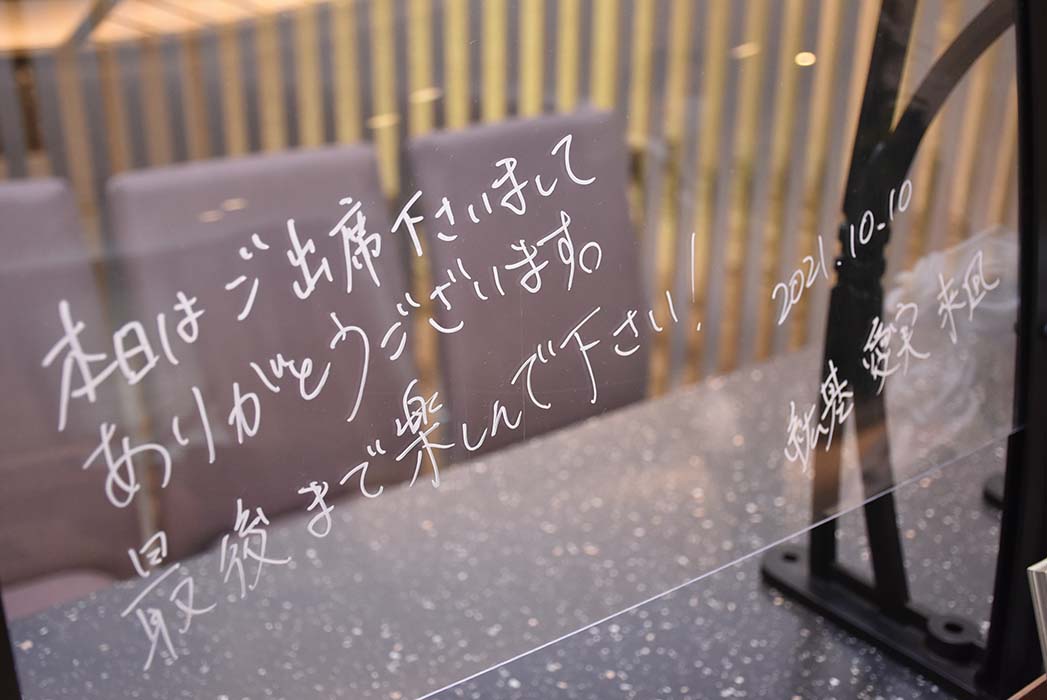 本日はご出席下さいまして
ありがとうございます。
最後まで楽しんで下さい!
2021.10.10
紘基 愛実 来凪